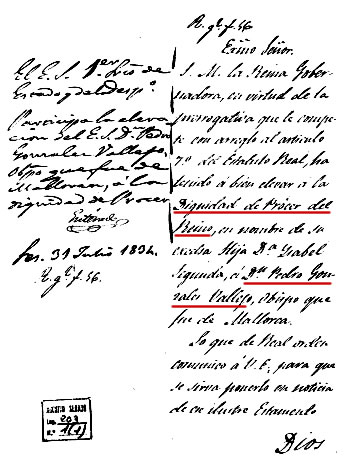 R. gl. f. 56.
Exmo Señor.
El E. S. 1er Srio de
Estado y del Desp.o
Participa la eleva
cion del E. S. Dn Pedro
Gonzalez Vallejo,
Obpo que fue de
Mallorca, á la
dignidad de Procer
Enterado
fho. 31 Julio 1834.
R. gl. f. 56.
S. M. la Reina Gober-
nadora, en virtud de la
prerrogativa que le compe-
te con arreglo al articulo
7.o del Estatuto Real, ha
tenido á bien elevar á la
Dignidad de Prócer del
Reino, en nombre de su
excelsa Hija Da Ysabel
Segunda, á Dn Pedro Gon-
zales Vallejo, obispo que
fue de Mallorca.
Lo que de Real orden
comunico á V. E. para que
se sirva ponerlo en noticia
de ese ilustre Estamento
Dios
ARCHIVO SENADO
Leg. 203
N.o 1(1)